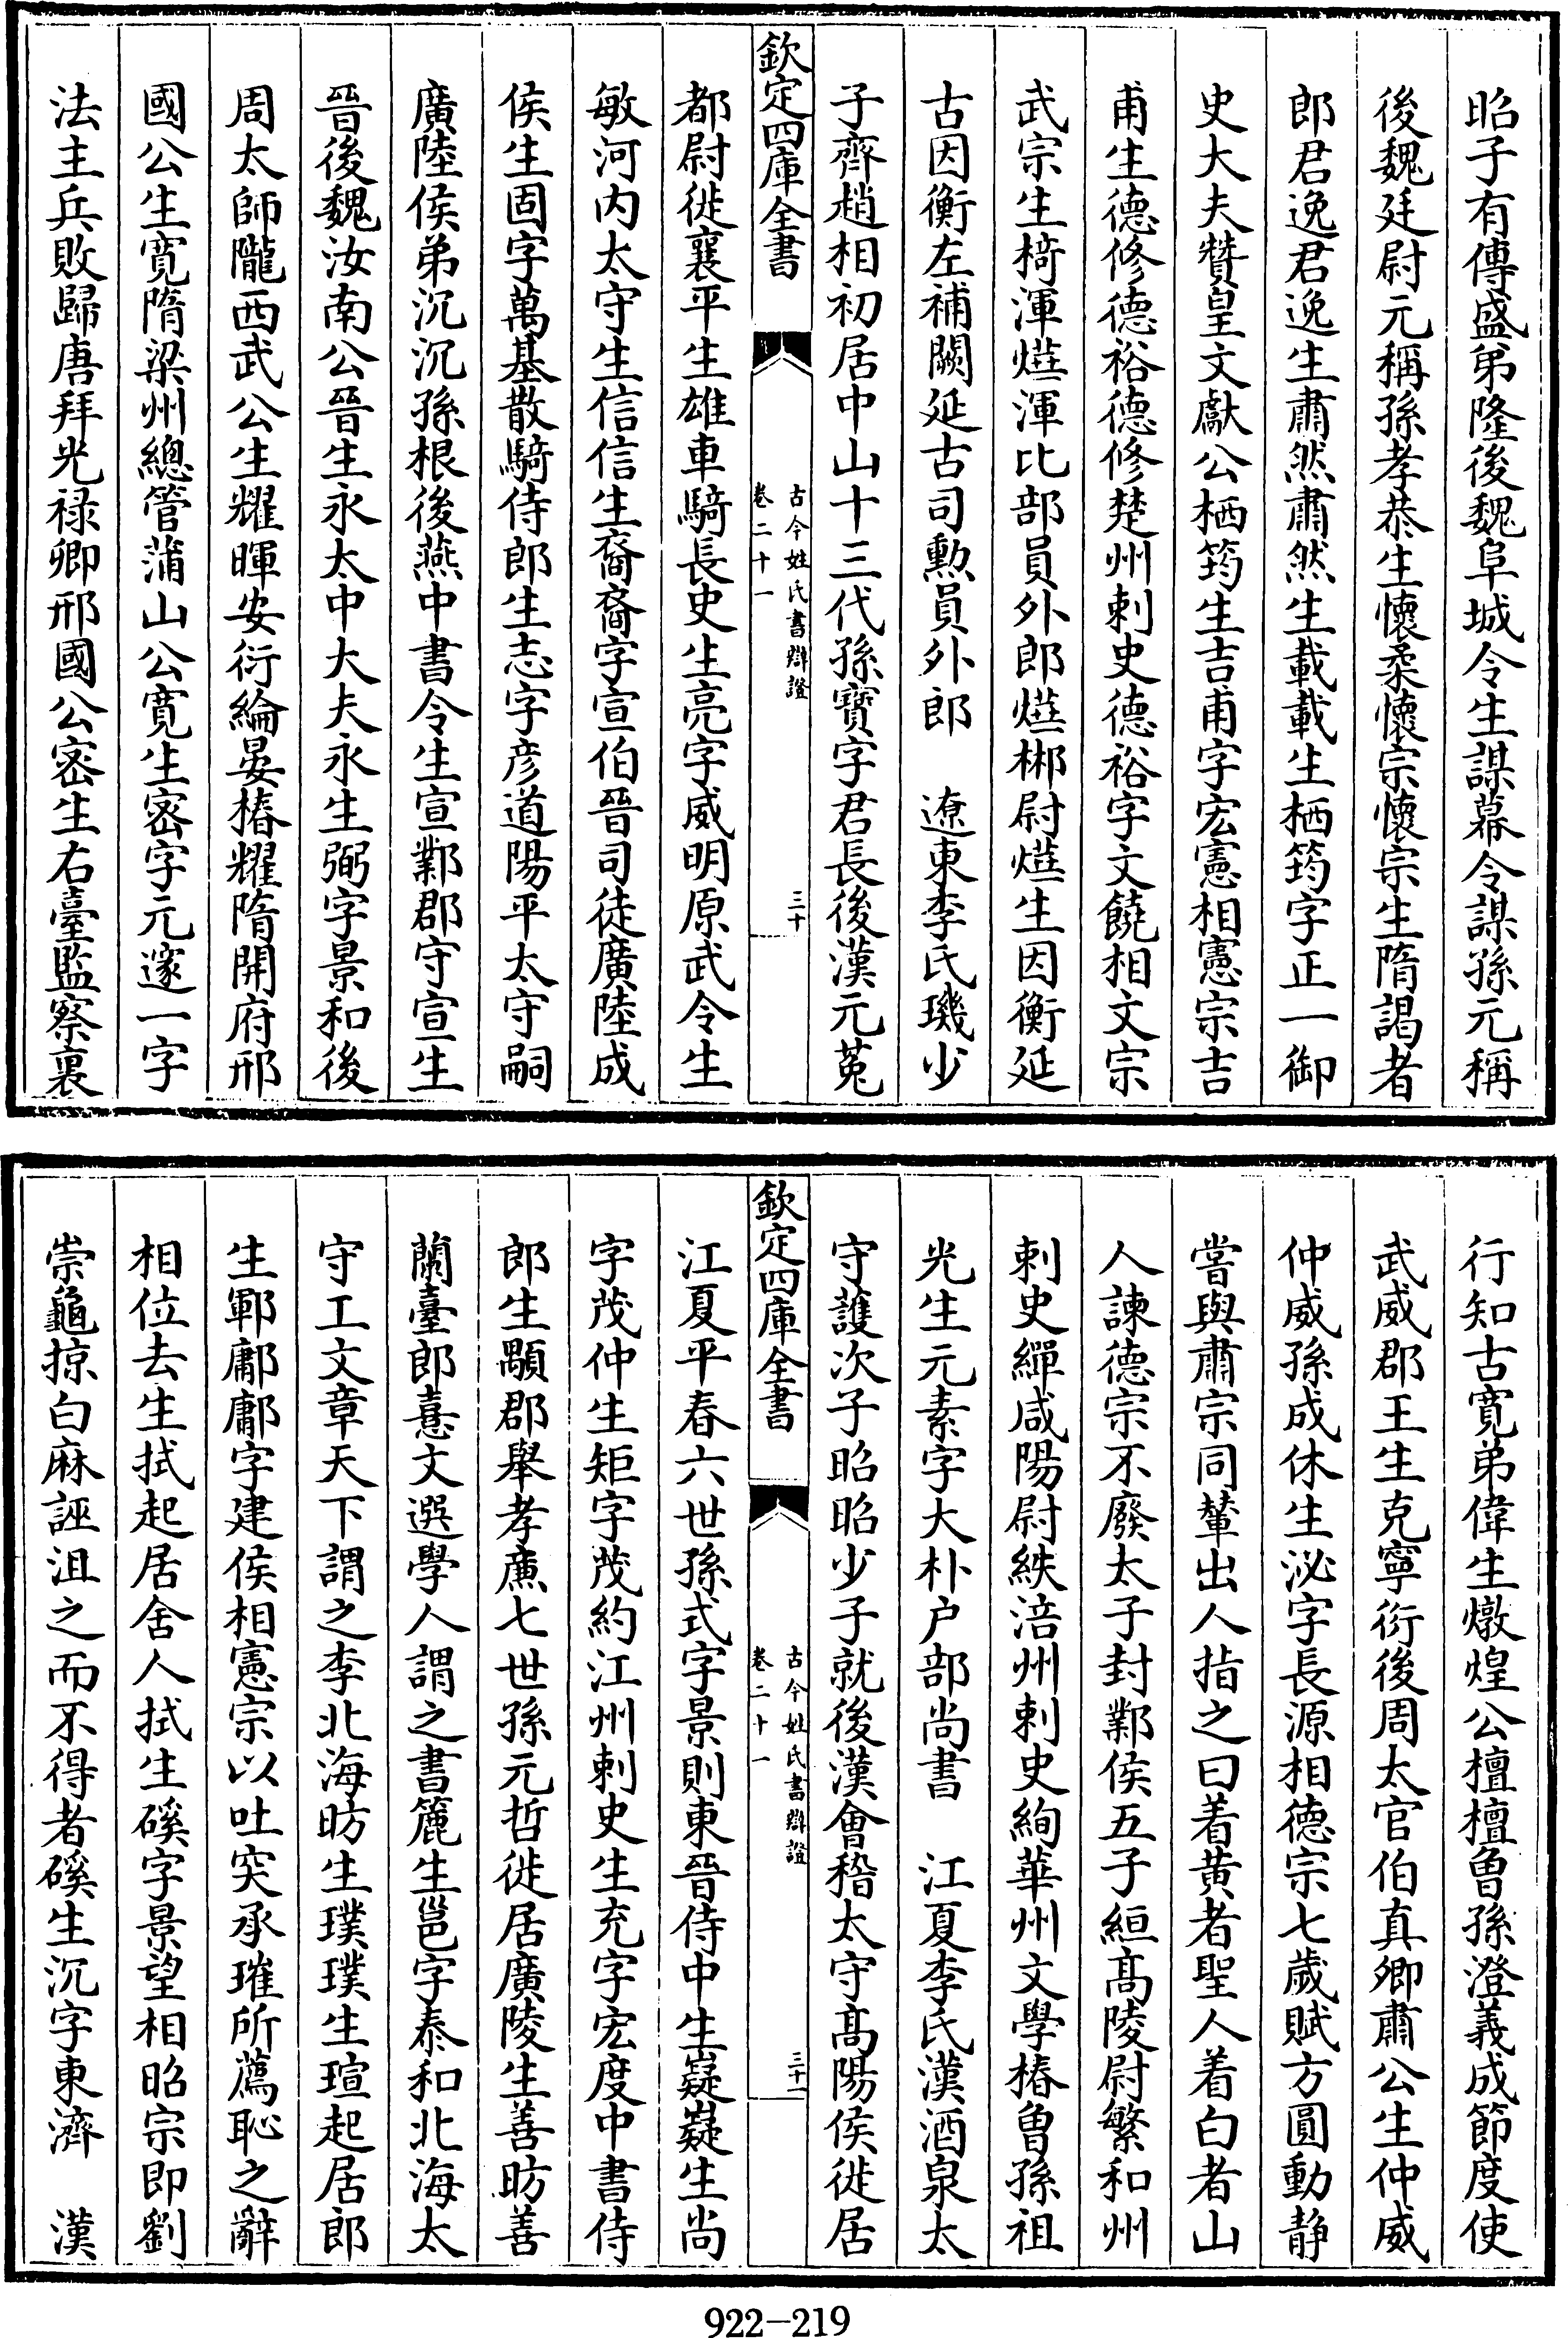 昭子有傳盛弟隆後魏阜城令生謀幕令謀孫元稱
後魏廷尉元稱孫孝恭生懷柔懷宗懷宗生隋謁者
郎君逸君逸生肅然肅然生載載生栖筠字正一御
史大夫贊皇文獻公栖筠生吉甫字宏憲相憲宗吉
甫生德修德裕德修楚州刺史德裕字文饒相文宗
武宗生椅渾燁渾比部員外郎燁郴尉燁生因衡延
古因衡左補闕延古司勲員外郎　遼東李氏璣少
子齊趙相初居中山十三代孫寳字君長後漢元菟
欽定四庫全書
古今姓氏書辯證
卷二十一
三十
都尉徙襄平生雄車騎長史生亮字威明原武令生
敏河内太守生信信生裔裔字宣伯晉司徒廣陸成
侯生固字萬基散騎侍郎生志字彦道陽平太守嗣
廣陸侯弟沉沉孫根後燕中書令生宣鄴郡守宣生
晉後魏汝南公晉生永太中大夫永生弼字景和後
周太師隴西武公生耀暉安衍綸晏椿耀隋開府邢
國公生寛隋梁州總管蒲山公寛生密字元邃一字
法主兵敗歸唐拜光禄卿邢國公密生右臺監察裏
行知古寛弟偉生燉煌公檀檀曽孫澄義成節度使
武威郡王生克寧衍後周太官伯真卿肅公生仲威
仲威孫成休生泌字長源相德宗七歲賦方圓動静
嘗與肅宗同輦出人指之曰着黄者聖人着白者山
人諫德宗不廢太子封鄴侯五子絙髙陵尉繁和州
刺史繟咸陽尉紩涪州刺史絢華州文學椿曽孫祖
光生元素字大朴户部尚書　江夏李氏漢酒泉太
守護次子昭昭少子就後漢會稽太守髙陽侯徙居
欽定四庫全書
古今姓氏書辯證
卷二十一
三十一
江夏平春六世孫式字景則東晉侍中生嶷嶷生尚
字茂仲生矩字茂約江州刺史生充字宏度中書侍
郎生顒郡舉孝廉七世孫元哲徙居廣陵生善昉善
蘭臺郎憙文選學人謂之書簏生邕字泰和北海太
守工文章天下謂之李北海昉生璞璞生瑄起居郎
生鄆鄘鄘字建侯相憲宗以吐突承璀所薦恥之辭
相位去生拭起居舍人拭生磎字景望相昭宗即劉
崇龜掠白麻誣沮之而不得者磎生沉字東濟　漢
922-219